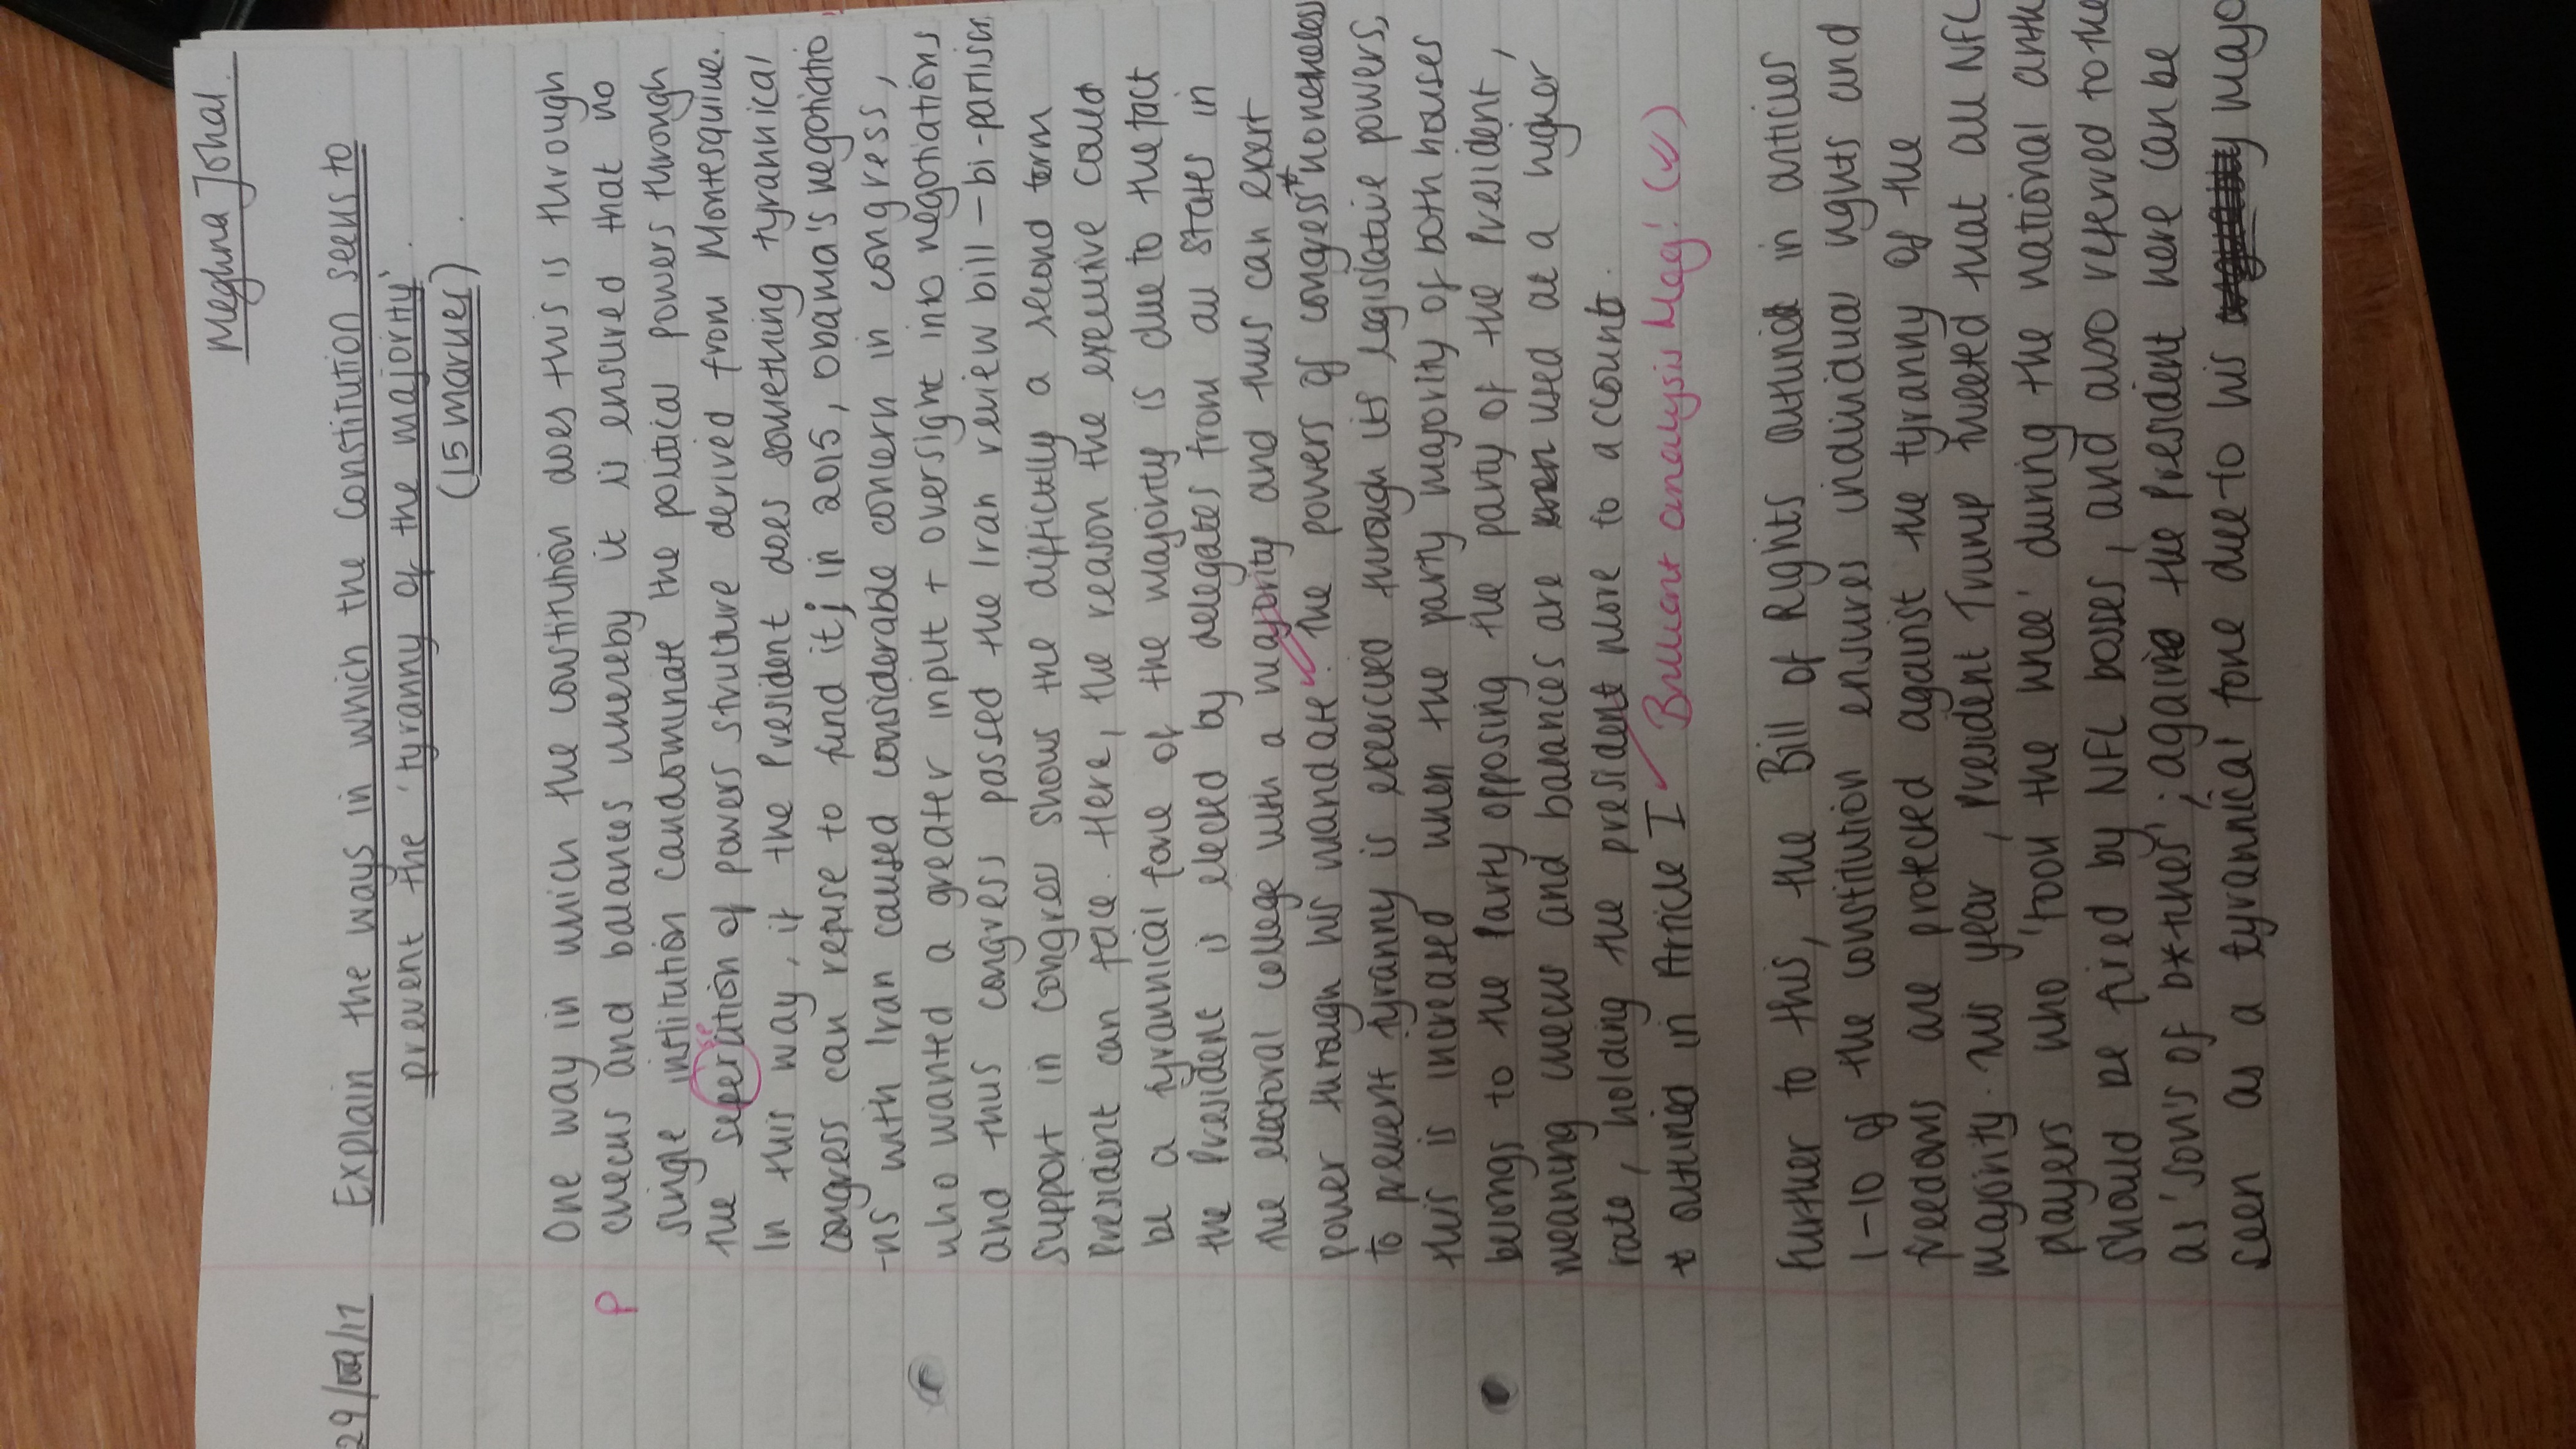 Meghna Johal.
29/09/17 Explain the ways in which the constitution seeks to
prevent the 'tyranny of the majority'.
(15 marker)
One way in which the constitution does this is through
P checks and balances whereby it is ensured that no
single institution can dominate the political powers through
the seperation of powers structure derived from Montesquiue.
In this way, if the President does something tyrannical
congress can refuse to fund it; in 2015, Obama's negotiatio
-ns with Iran caused considerable concern in congress,
who wanted a greater input + oversight into negotiations
and thus congress passed the Iran review bill – bi-partisan
support in Congress shows the difficulty a second term
President can face. Here, the reason the executive could
be a tyrannical force of the majority is due to the fact
the President is elected by delegates from all states in
the electoral college with a majority and thus can exert
power through his mandate. The powers of congress* nonetheless
to prevent tyranny is exercised through its legislative powers,
this is increased when the party majority of both houses
belongs to the Party opposing the party of the President,
meaning checks and balances are used at a higher
rate, holding the president more to account.
* outlined in Article I
Brilliant analysis Meg! (✓)
Further to this, the Bill of Rights outlined in articles
1-10 of the constitution ensures individual rights and
freedoms are protected against the tyranny of the
majority. This year, President Trump tweeted that all NFL
players who 'took the knee' during the national anth
should be fired by NFL bosses, and also referred to the
as 'sons of b*tches'; again the President here can be
seen as a tyrannical force due to his majo